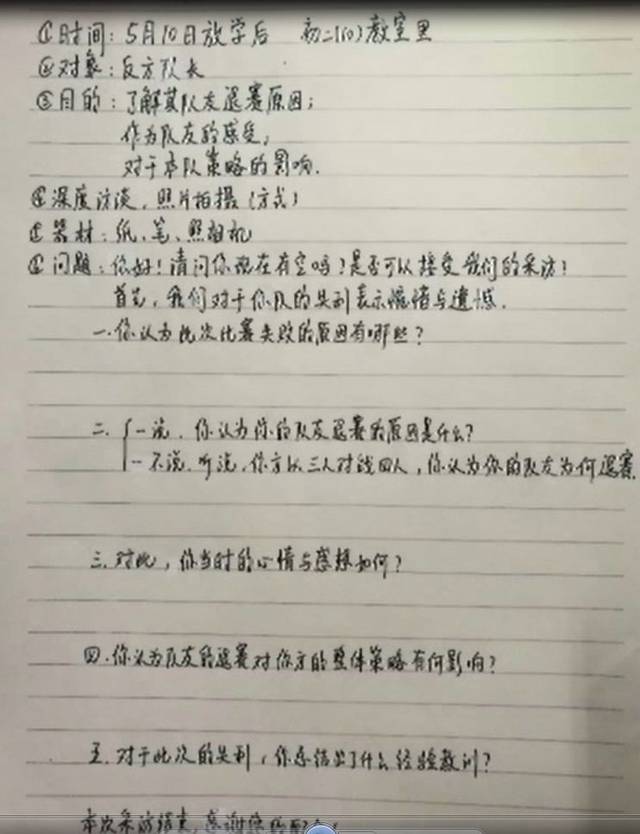 ①时间：5月10日放学后 初二(10)教室里
②对象：反方队长
③目的：了解其队友退赛原因；
作为队友的感受；
对于本队策略的影响.
④深度访谈，照片拍摄（方式）
⑤器材：纸、笔、照相机
⑥问题：你好！请问你现在有空吗？是否可以接受我们的采访？
首先，我们对于你队的失利表示惋惜与遗憾.
一.你认为此次比赛失败的原因有哪些？
二. 一说.你认为你的队友退赛的原因是什么？
一不说.听说，你方以三人对战四人，你认为你的队友为何退赛
三.对此，你当时的心情与感想如何？
四.你认为队友的退赛对你方的整体策略有何影响？
五.对于此次的失利，你总结出了什么经验教训？
本次采访结束，感谢你的配合！